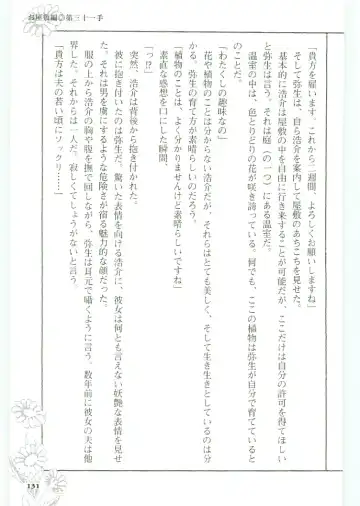 番◎第三十一手
「貴方を雇います。これから一週間、よろしくお願いしますね」
そして弥生は、自ら浩介を案内して屋敷のあちこちを見せた。
基本的に浩介は屋敷の中を自由に行き来することが可能だが、ここだけは自分の許可を得てほしい
と弥生は言う。それは庭（の一つ）にある温室だ。
温室の中は、色とりどりの花が咲き誇っている。何でも、ここの植物は弥生が自分で育てていると
「わたくしの趣味なの」
花や植物のことは分からない浩介だが、それらはとても美しく、そして生き生きとしているのは分
かる。弥生の育て方が素晴らしいのだろう。
「植物のことは、よく分かりませんけど素晴らしいですね」
素直な感想を口にした瞬間、
「っ!?」
突然、浩介は背後から抱き付かれた。
彼に抱き付いたのは弥生だ。驚いた表情を向ける浩介に、彼女は何とも言えない妖艶な表情を見せ
る。それは男を虜にするような危険さが宿る魅力的な顔だった。
服の上から浩介の胸や腹を撫で回しながら、弥生は耳元で囁くように言う。数年前に彼女の夫は他
界した。それからは一人だ。寂しくてしょうがないと言う。
「貴方は夫の若い頃にソックリ……」
131